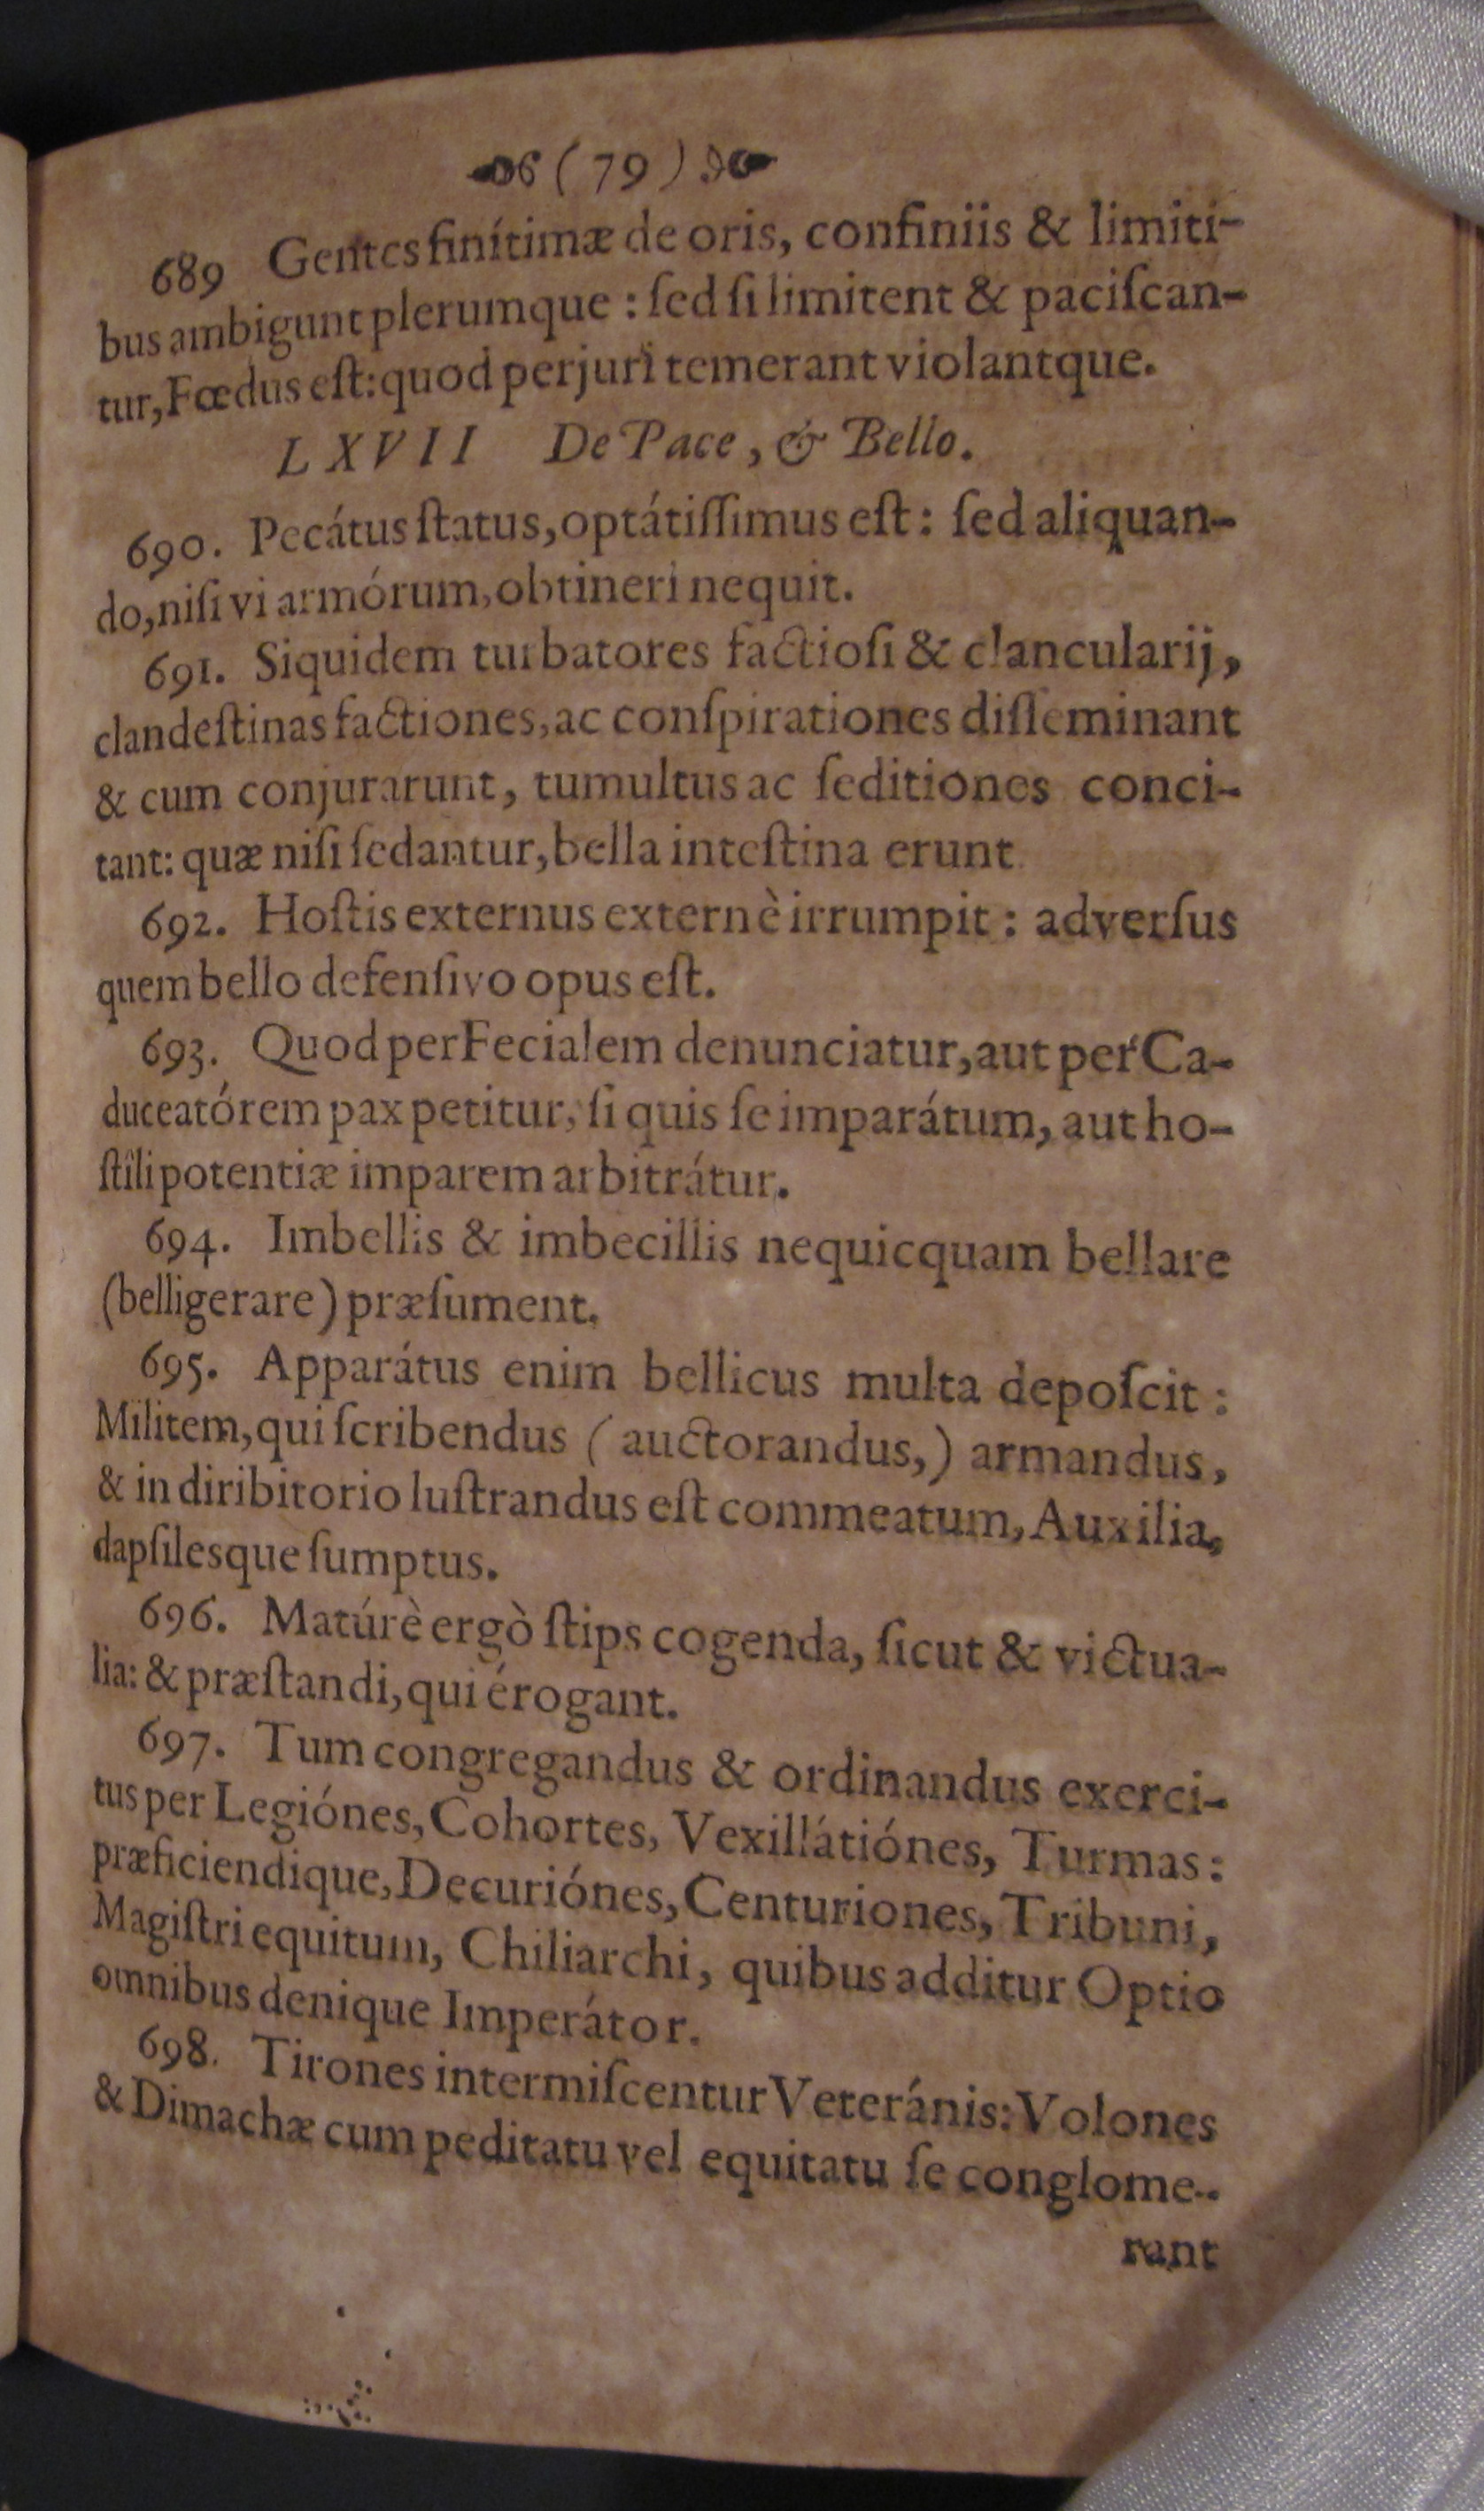 (79)
689 Gentes finítimæ de oris, confiniis & limiti-
bus ambigunt plerumque : ſed ſi limitent & paciſcan-
tur, Fœdus eſt: quod perjuri temerant violantque.
LXVII De Pace, & Bello.
690. Pecátus ſtatus, optátiſſimus eſt : ſed aliquan-
do, niſi vi armórum, obtineri nequit.
691. Siquidem turbatores factioſi & clancularij,
clandeſtinas factiones, ac conſpirationes diſſeminant
& cum conjurarunt, tumultus ac ſeditiones conci-
tant: quæ niſi ſedantur, bella inteſtina erunt
692. Hoſtis externus externè irrumpit : adverſus
quem bello defenſivo opus eſt.
693. Quod per Fecialem denunciatur, aut per Ca-
duceatórem pax petitur, ſi quis ſe imparátum, aut ho-
ſtili potentiæ imparem arbitrátur.
694. Imbellis & imbecillis nequicquam bellare
(belligerare) præſument.
695. Apparátus enim bellicus multa depoſcit :
Militem, qui ſcribendus ( auctorandus,) armandus,
& in diribitorio luſtrandus eſt commeatum, Auxilia,
dapſilesque ſumptus.
696. Matúrè ergò ſtips cogenda, ſicut & victua-
lia: & præſtandi, qui érogant.
697. Tum congregandus & ordinandus exerci-
tus per Legiónes, Cohortes, Vexillátiónes, Turmas :
præficiendique, Decuriónes, Centuriones, Tribuni,
Magiſtri equitum, Chiliarchi, quibus additur Optio
omnibus denique Imperátor.
698. Tirones intermiſcentur Veteránis: Volones
& Dimachæ cum peditatu vel equitatu ſe conglome-
rant